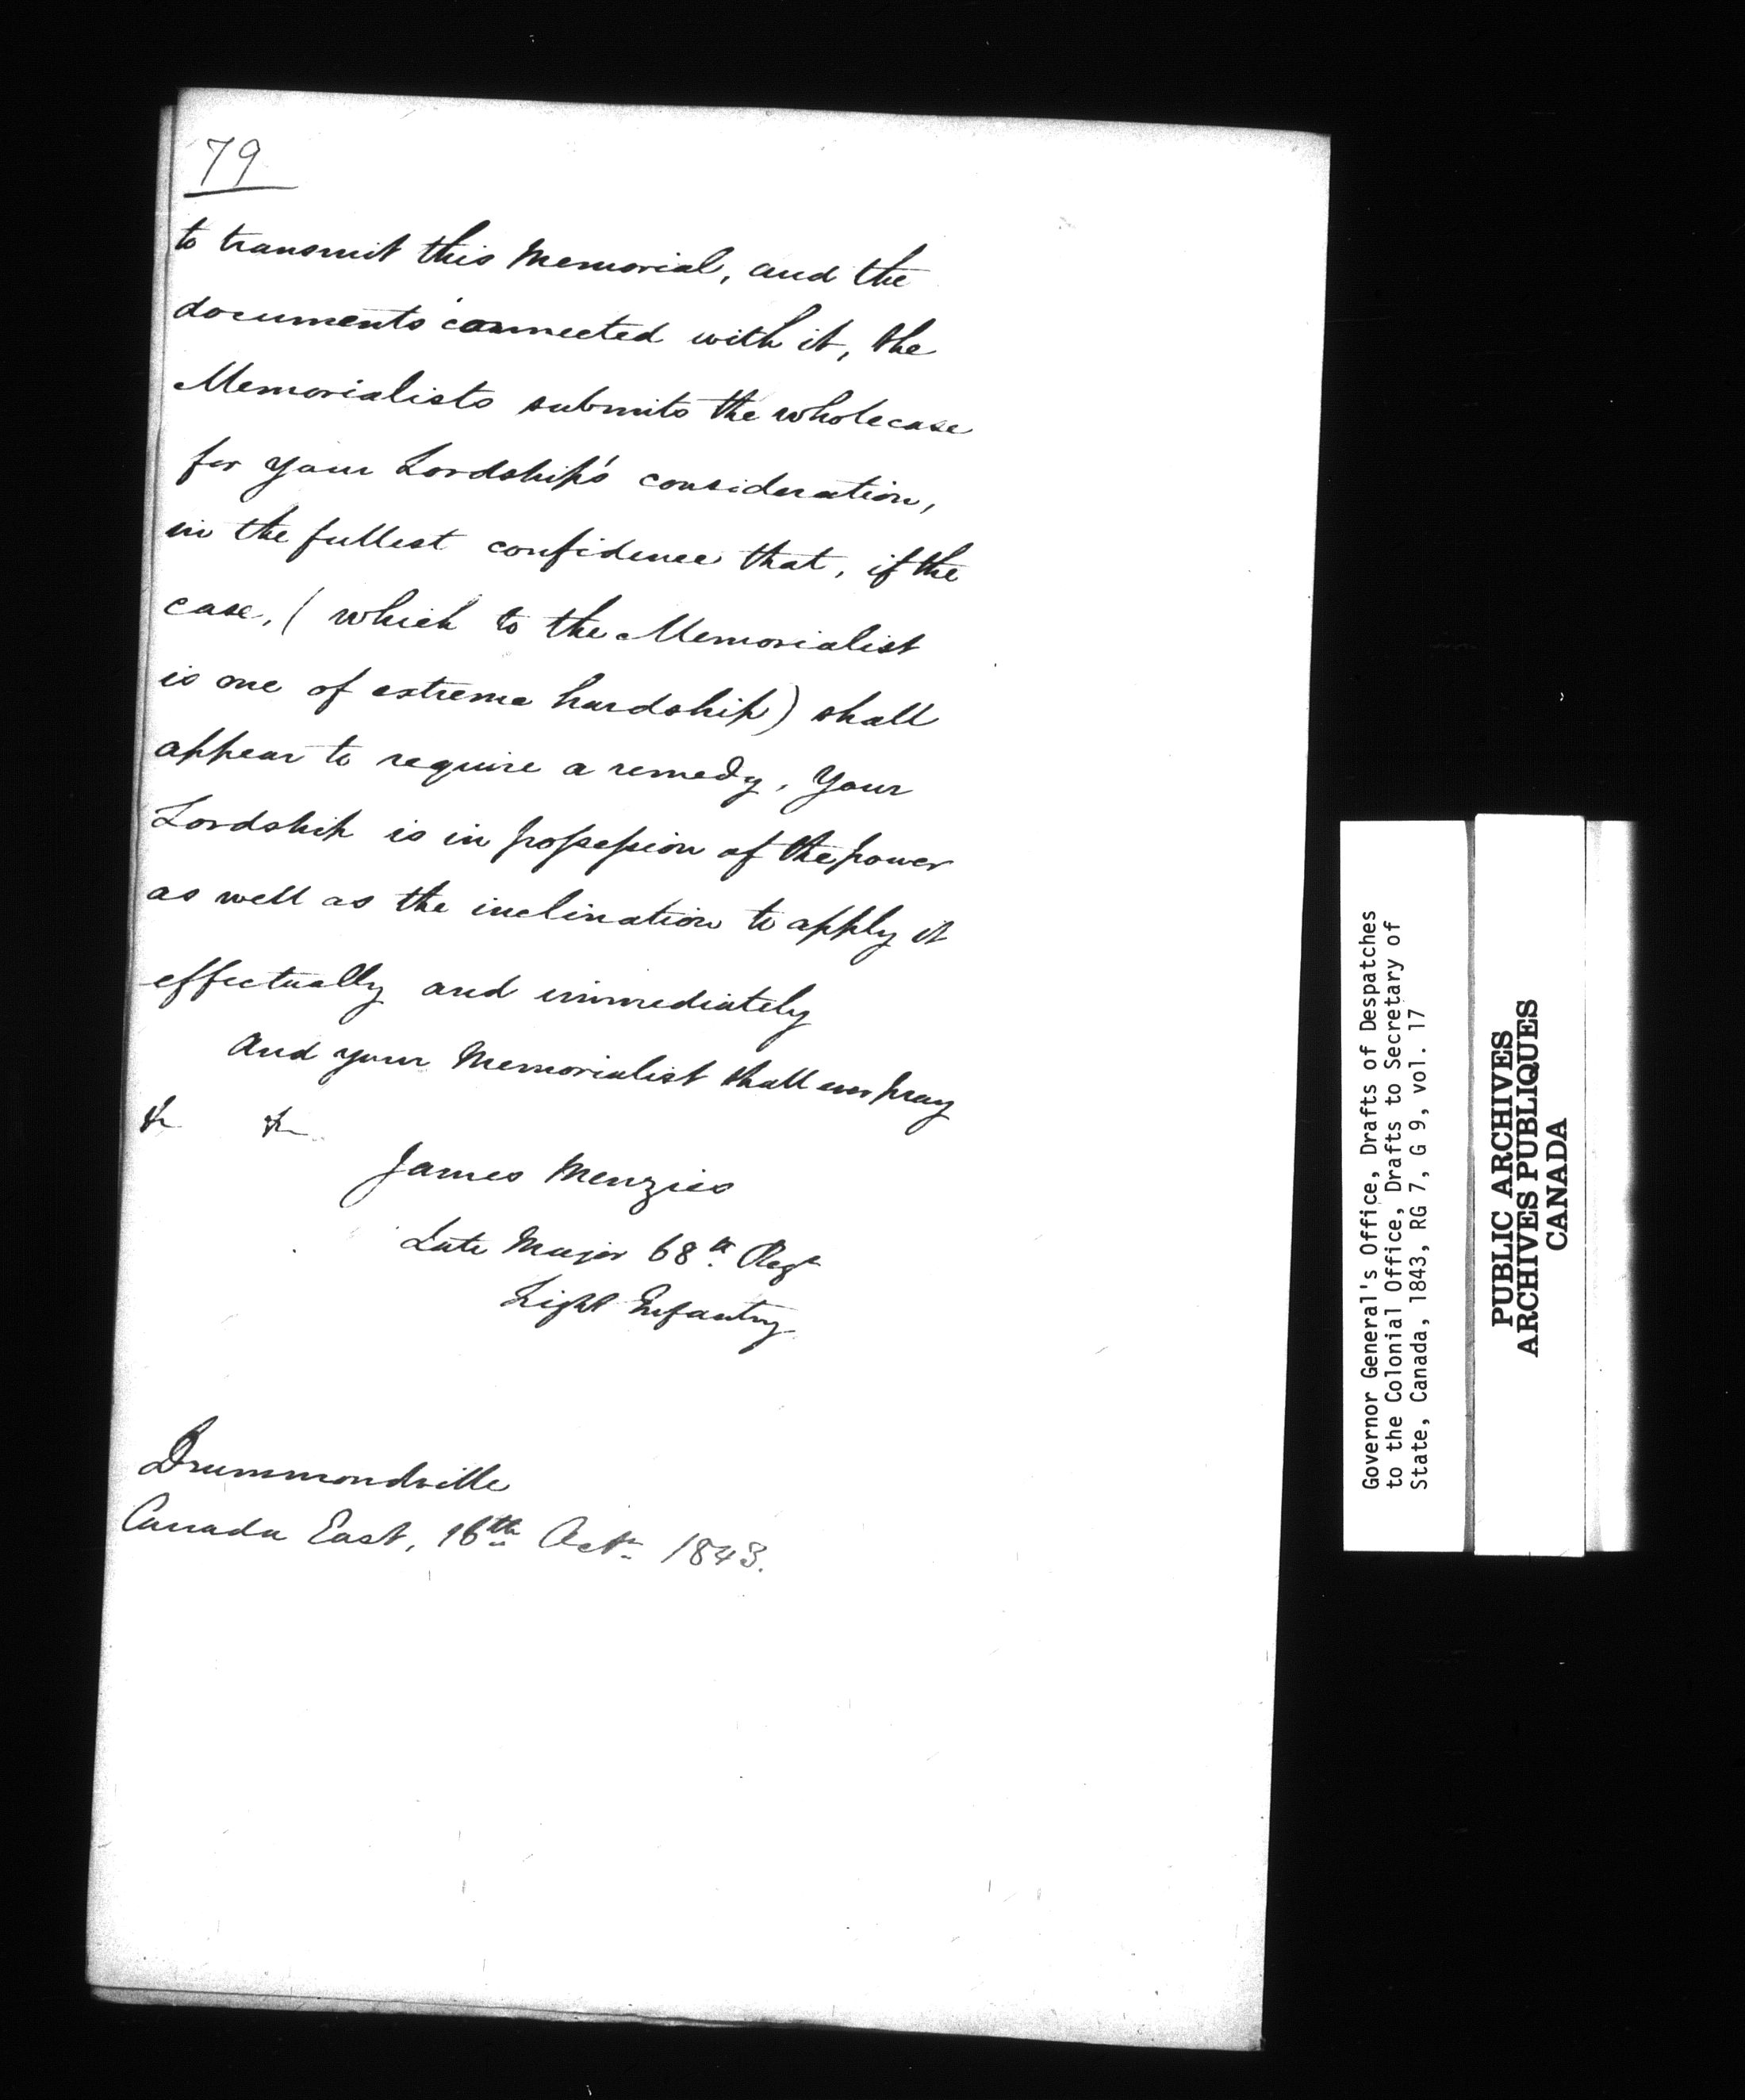 79
to transmit this Memorial, and the
documents connected with it, the
Memorialists submits the whole case
for your Lordship's consideration,
in the fullest confidence that, if the
case, ( which to the Memorialist
is one of extreme hardship) shall
appear to require a remedy, Your
Lordship is in possession of the power
as well as the inclination to apply it
effectually and immediately
And your Memorialist shall ever pray
&c &c
James Menzies
Late Major 68th Regt
Light Infantry
Drummondville
Canada East, 16th Octr 1843.
Governor General's Office, Drafts of Despatches
to the Colonial Office, Drafts to Secretary of
State, Canada, 1843, RG 7, G 9, vol. 17
PUBLIC ARCHIVES
ARCHIVES PUBLIQUES
CANADA